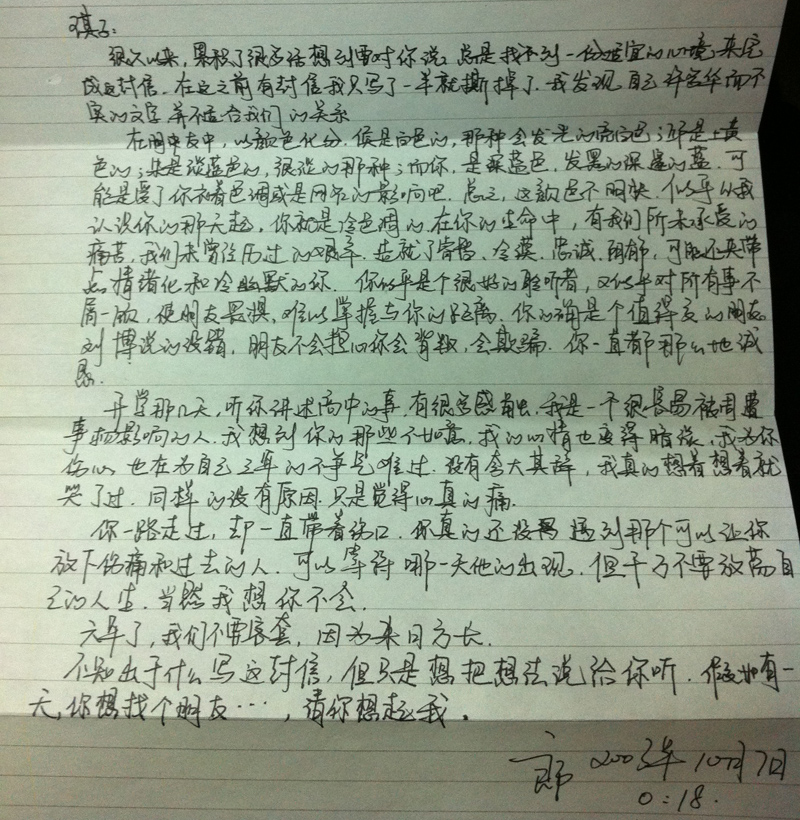 琪子：
很久以来，累积了很多话想到要对你说。总是找不到一份适宜的心境，来完
成这封信。在这之前有封信我只写了一半就撕掉了。我发现自己许多华而不
实的文字并不适合我们的关系
在朋友中，以颜色化分。侯是白色的，那种会发光的的白色；邱是土黄
色的；朱是淡蓝色的，很淡的那种；而你，是深蓝色，发黑的深邃的蓝。可
能是受了你衣着色调或是网名的影响吧。总之，这颜色不明快。似乎从我
认识你的那天起，你就是冷色调的。在你的生命中，有我们所未承受的
痛苦，我们未曾经历过的艰辛。造就了肯哲、冷漠、忠诚、阴郁，可能还夹带
点情绪化和冷幽默的你。你似乎是个很好的聆听者，又似乎对所有事不
屑一顾，使朋友畏惧，难以掌握与你的距离。你的确是个值得交的朋友
刘博说的没错，朋友不会担心你会背叛，会欺骗。你一直都那么地诚
恳。
开学那几天，听你讲述高中的事，有很多感触。我是一个很容易被周遭
事物影响的人。我想到你的那些不如意，我的心情也变得暗淡，我为你
伤心 也在为自己三年的不争气难过。没有夸大其辞，我真的想着想着就
哭了过。同样的没有原因，只是觉得心真的痛。
你一路走过，却一直带着伤口。你真的还没 遇到那个可以让你
放下伤痛和过去的人。可以等待哪一天他的出现。但千万不要放弃自
己的人生。当然我想你不会。
六年了，我们不要客套，因为来日方长。
不知出于什么写这封信，但只是想把想法说给你听。假如有一
天，你想找个朋友……，请你想起我。
郎 2003年10月7日
0:18.